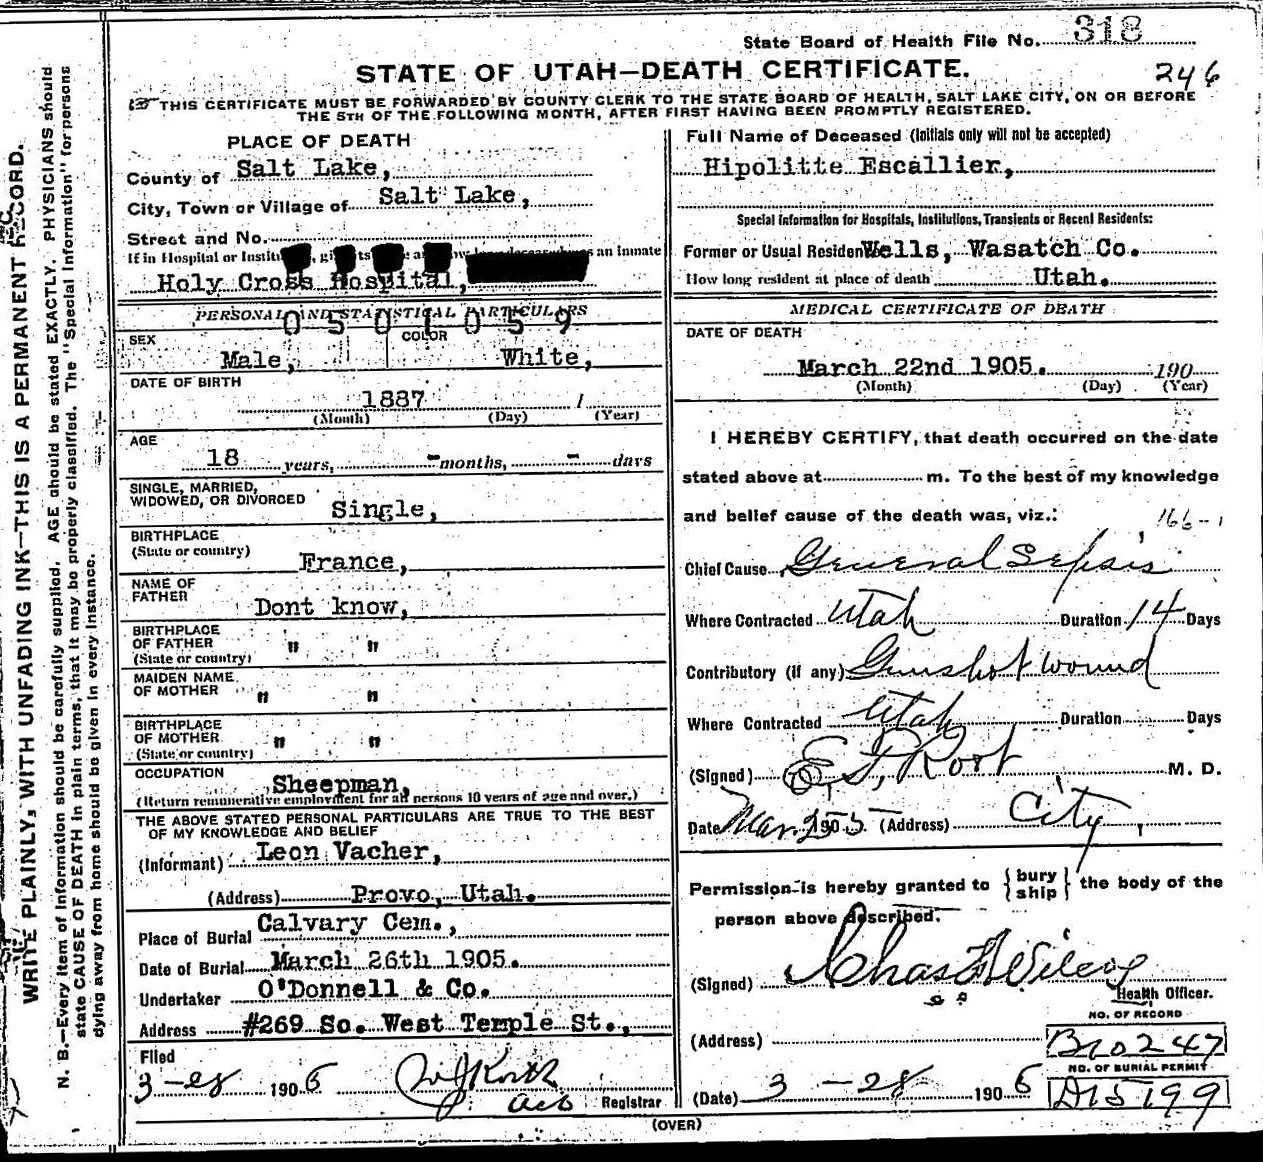 State Board of Health File No. 318
STATE OF UTAH—DEATH CERTIFICATE.
246
THIS CERTIFICATE MUST BE FORWARDED BY COUNTY CLERK TO THE STATE BOARD OF HEALTH, SALT LAKE CITY, ON OR BEFORE
THE 5TH OF THE FOLLOWING MONTH, AFTER FIRST HAVING BEEN PROMPTLY REGISTERED.
WRITE PLAINLY, WITH UNFADING INK—THIS IS A PERMANENT RECORD.
N. B.—Every item of information should be carefully supplied. AGE should be stated EXACTLY. PHYSICIANS should
state CAUSE OF DEATH in plain terms, that it may be properly classified. The "Special Information" for persons
dying away from home should be given in every instance.
PLACE OF DEATH
County of Salt Lake,
City, Town or Village of Salt Lake,
Street and No.
If in Hospital or an inmate
Holy Cross Hospital,
PERSONAL AND STATISTICAL PARTICULARS
0501059
SEX Male, COLOR White,
DATE OF BIRTH
1887
(Month) (Day) (Year)
AGE
18 years, - months, - days
SINGLE, MARRIED,
WIDOWED, OR DIVORCED Single,
BIRTHPLACE
(State or country) France,
NAME OF
FATHER Dont know,
BIRTHPLACE
OF FATHER " "
(State or country)
MAIDEN NAME
OF MOTHER " "
BIRTHPLACE
OF MOTHER " "
(State or country)
OCCUPATION Sheepman,
(Return remunerative employment for all persons 10 years of age and over.)
THE ABOVE STATED PERSONAL PARTICULARS ARE TRUE TO THE BEST
OF MY KNOWLEDGE AND BELIEF
(Informant) Leon Vacher,
(Address) Provo, Utah.
Place of Burial Calvary Cem.,
Date of Burial March 26th 1905.
Undertaker O'Donnell & Co.
Address #269 So. West Temple St.,
Filed
3-28 1905
Registrar
Full Name of Deceased (Initials only will not be accepted)
Hipolitte Escallier,
Special Information for Hospitals, Institutions, Transients or Recent Residents:
Former or Usual Residen Wells, Wasatch Co.
How long resident at place of death Utah.
MEDICAL CERTIFICATE OF DEATH
DATE OF DEATH
March 22nd 1905. 190
(Month) (Day) (Year)
I HEREBY CERTIFY, that death occurred on the date
stated above at m. To the best of my knowledge
and belief cause of the death was, viz.: 166-1
Chief Cause General Sepsis
Where Contracted Utah Duration 14 Days
Contributory (if any) Gunshot wound
Where Contracted Utah Duration Days
(Signed) E. F. Root M. D.
Date Mar. 25 1905 (Address) City,
Permission is hereby granted to {bury ship} the body of the
person above described.
(Signed) Chas F Wilcox
Health Officer.
NO. OF RECORD
(Address) B10247
NO. OF BURIAL PERMIT
(Date) 3-28 1905 D15199
(OVER)